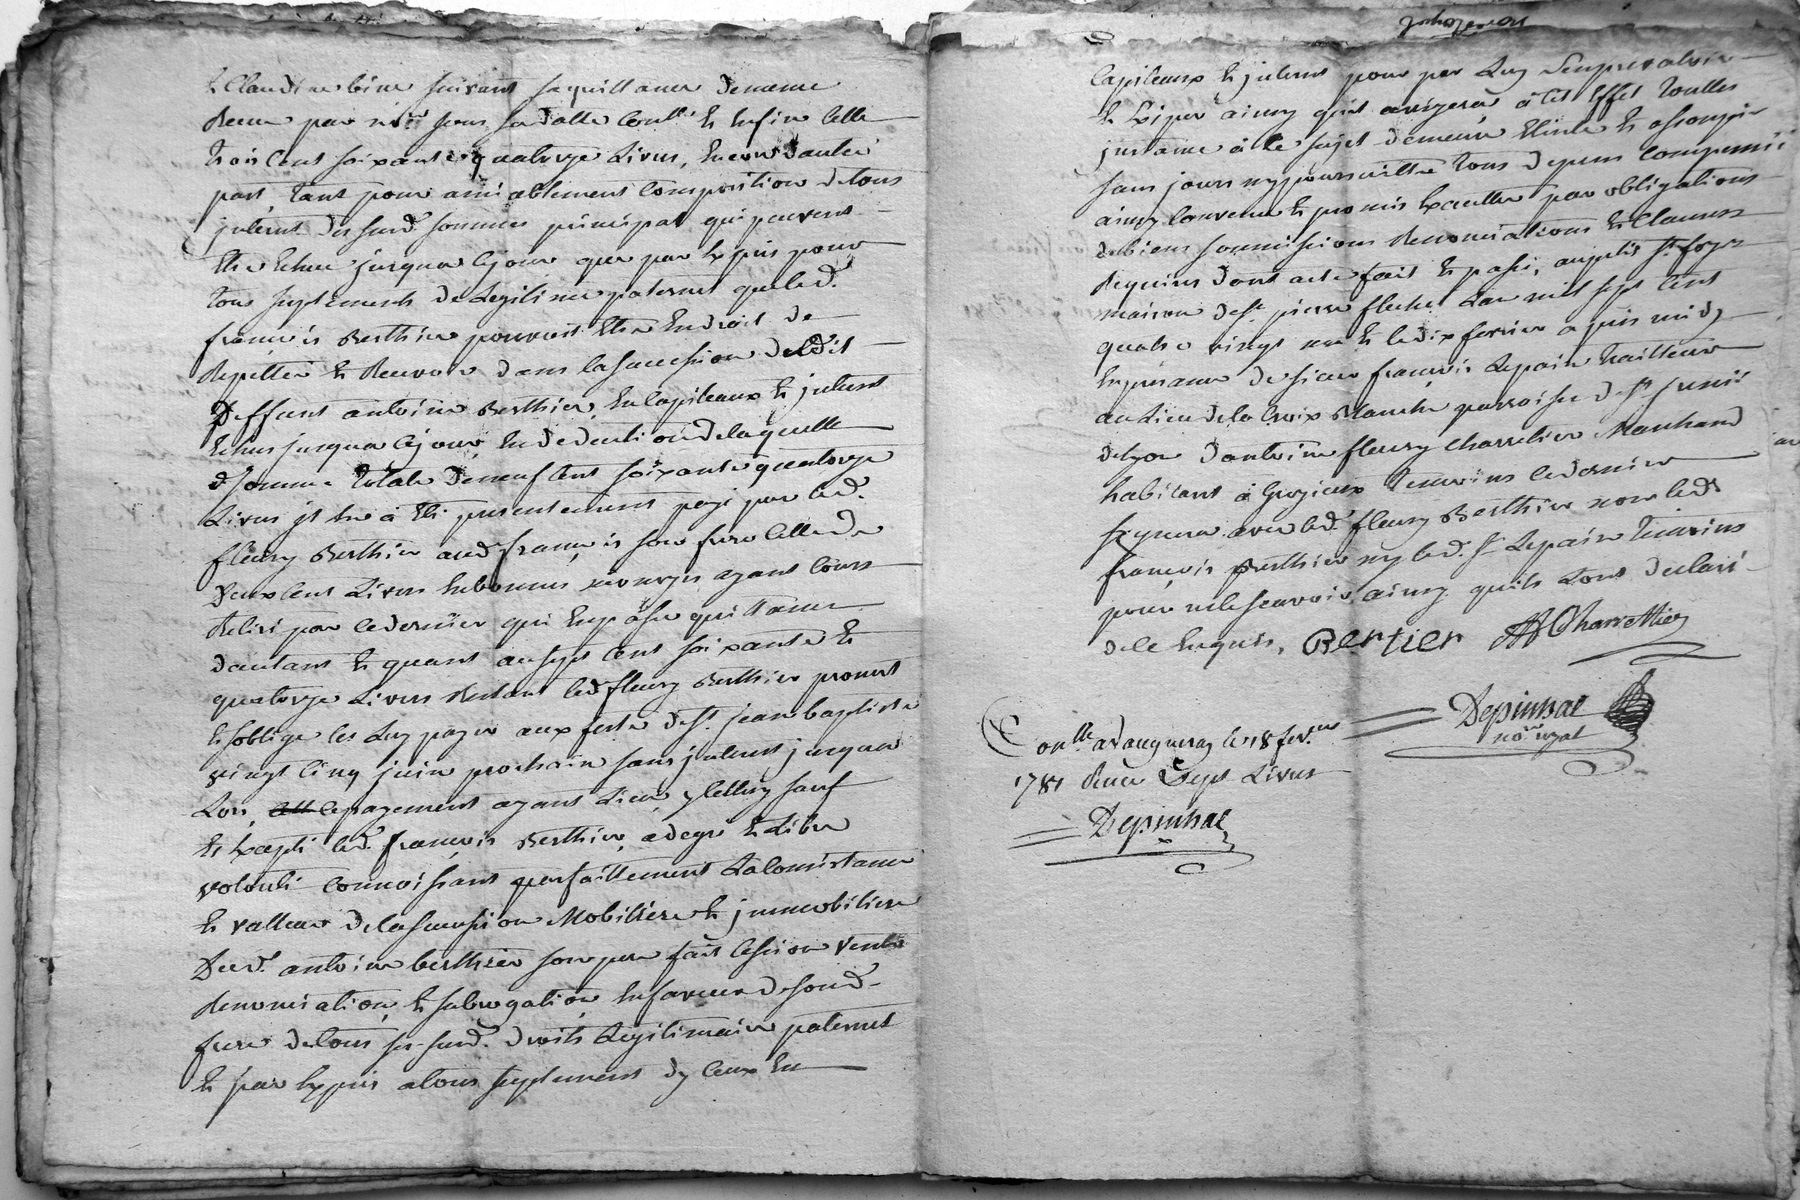 & Claudine bine suivant sa quittance dememe
Receue par n.re sous sa datte Conllé & enfin celle
trois cent soixante quatorze Livres, encore d'autre
part, tant pour amiablement Composition de tous
interest des surd. sommes principal qui peuvent
etre echeu jusqua ce jour que par expres pour
tous suplements de Legitime paternel que led.
francois Berthier pouvoit etre en droit de
Repetter & Recevoir dans la succession dudit
deffunt antoine Berthier, en capiteaux & interest
echus jusqua ce jour, en deduction de laquelle
somme totale de neuf cent soixante quatorze
Livres il luy a eté presentement payé par led.
fleury Berthier aud. francois son frere celle de
deux cent Livres en bonnes monoyes ayant cours
Retiré par ce dernier qui en passe quittance
dautant & quant au sept cent soixante &
quatorze Livres Restant led. fleury Berthier promet
& soblige les luy payer aux feste de st. jean baptiste
vingt cinq juin prochain sans interest jusqua
Lors, le payement ayant Lieu
& excepté led. francois Berthier, de gré & Libre
volonté connoissant parfaittement La consistance
& valleur de la succession Mobiliere & immobiliere
dud. antoine berthier son pere fait cession vente
Renonciation, & subrogation, en faveur de sond.
frere de tous ses surd. droits Legitimaire paternel
& par expres a tous suplement dy ceux en
capiteaux & interest pour par Luy
& ainsy quil avizera a cet effet toutes
instance a ce sujet demeure eteinte & assoupie
sans jours ny poursuitte tous depens compensé
ainsy convenu & promis executter par obligations
de biens soumissions Renonciations & clauses
Requises dont acte fait & passé, au st. foys
maison de st. pierre fleche Lan mil sept cent
quatre vingt un & le dix fevrier apres midy
en presence de sieur francois Lepain traitteur
au Lieu de la Croix Blanche parroisse de st. irenée
de Lyon d'antoine fleury Charretier Marchand
habitant a Grezieux temoins ce dernier
signera avec led. fleury Berthier non led.
francois Berthier ny led. sr. Lepain temoins
pour ne le scavoir, ainsy quils Lont declaré
de ce enquis, Bertier AF Charrettier
Depinhac
no.re royal
Conllé a vaugneray le 18 fev.er
1781 Receu sept Livres
Depinhac